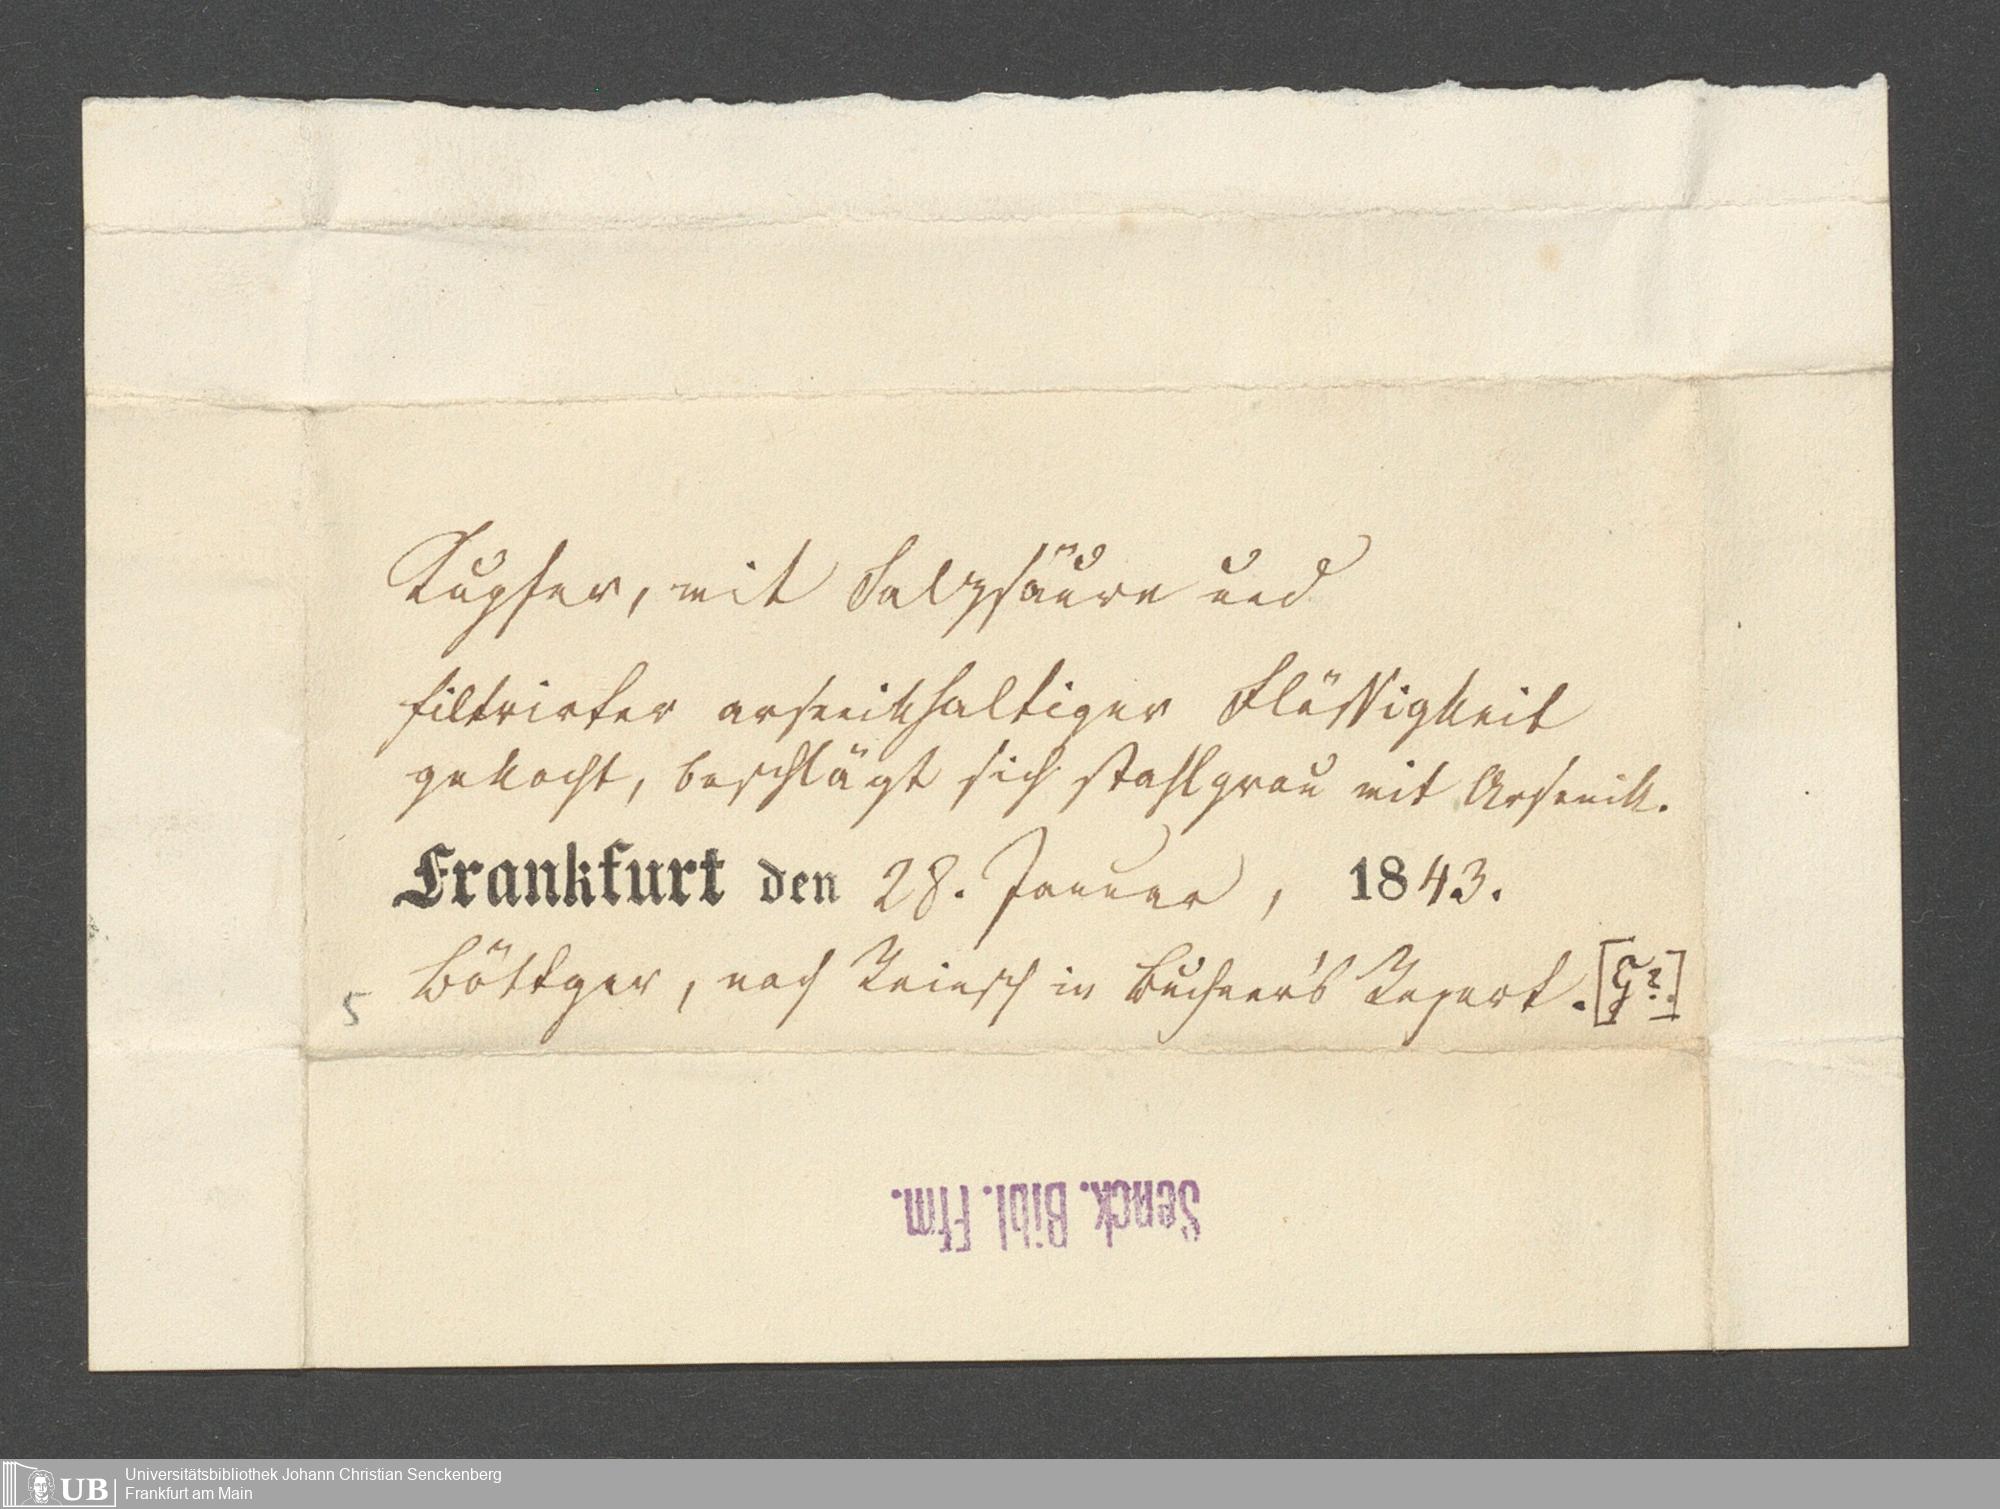 Kupfer, mit Salzsäure und
filtrirter arsenikhaltiger Flüssigkeit
gekocht, beschlägt sich stahlgrau mit Arsenik.
Frankfurt den 28. Januar, 1843.
Böttger, nach Reinsch in Buchner's Repert.
5
Senck. Bibl. Ffm.
UB Universitätsbibliothek Johann Christian Senckenberg
Frankfurt am Main